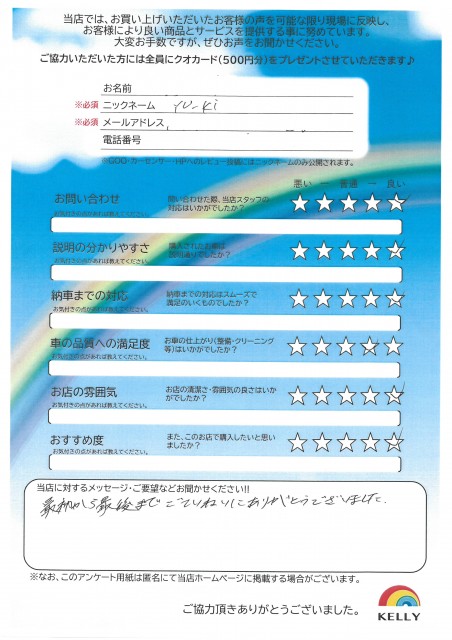 当店では、お買い上げいただいたお客様の声を可能な限り現場に反映し、
お客様により良い商品とサービスを提供する事に努めています。
大変お手数ですが、ぜひお声をお聞かせください。
ご協力いただいた方には全員にクオカード(500円分)をプレゼントさせていただきます♪
お名前
※必須 ニックネーム yu-ki
※必須 メールアドレス
電話番号
※GOO・カーセンサー・HPへのレビュー投稿にはニックネームのみ公開されます。
悪い ー 普通 ー 良い
お問い合わせ 問い合わせた際、当店スタッフの
お気付きの点があれば教えてください。 対応はいかがでしたか?
説明の分かりやすさ 購入されたお車は
お気付きの点があれば教えてください。 説明通りでしたか?
納車までの対応 納車までの対応はスムーズで
お気付きの点があれば教えてください。 満足のいくものでしたか?
車の品質への満足度 お車の仕上がり(整備・クリーニング
お気付きの点があれば教えてください。 等)はいかがでしたか?
お店の雰囲気 お店の清潔さ・雰囲気の良さはいか
お気付きの点があれば教えてください。 がでしたか?
おすすめ度 また、このお店で購入したいと思い
お気付きの点があれば教えてください。 ましたか?
当店に対するメッセージ・ご要望などお聞かせください!!
最初から最後までていねいにありがとうございました。
※なお、このアンケート用紙は匿名にて当店ホームページに掲載する場合がございます。
ご協力頂きありがとうございました。
KELLY